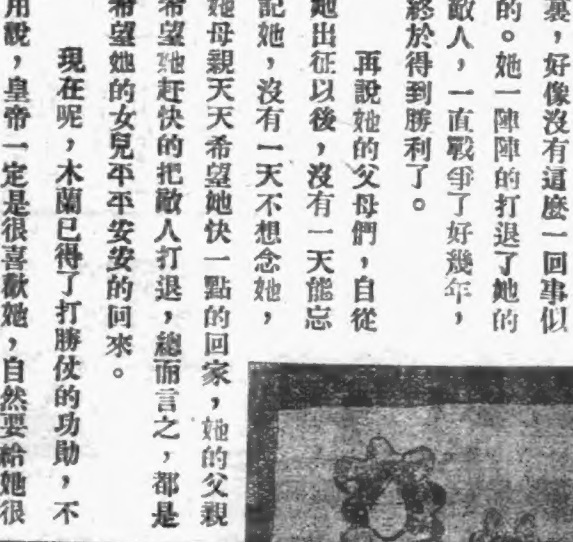 裏，好像沒有這麼一回事似
的。她一陣陣的打退了她的
敵人，一直戰爭了好幾年，
終於得到勝利了。
再說她的父母們，自從
她出征以後，沒有一天能忘
記她，沒有一天不想念她，
她母親天天希望她快一點的回家，她的父親
希望她赶快的把敵人打退，總而言之，都是
希望她的女兒平平安安的回來。
現在呢，木蘭已得了打勝仗的功勛，不
用說，皇帝一定是很喜歡她，自然要給她很